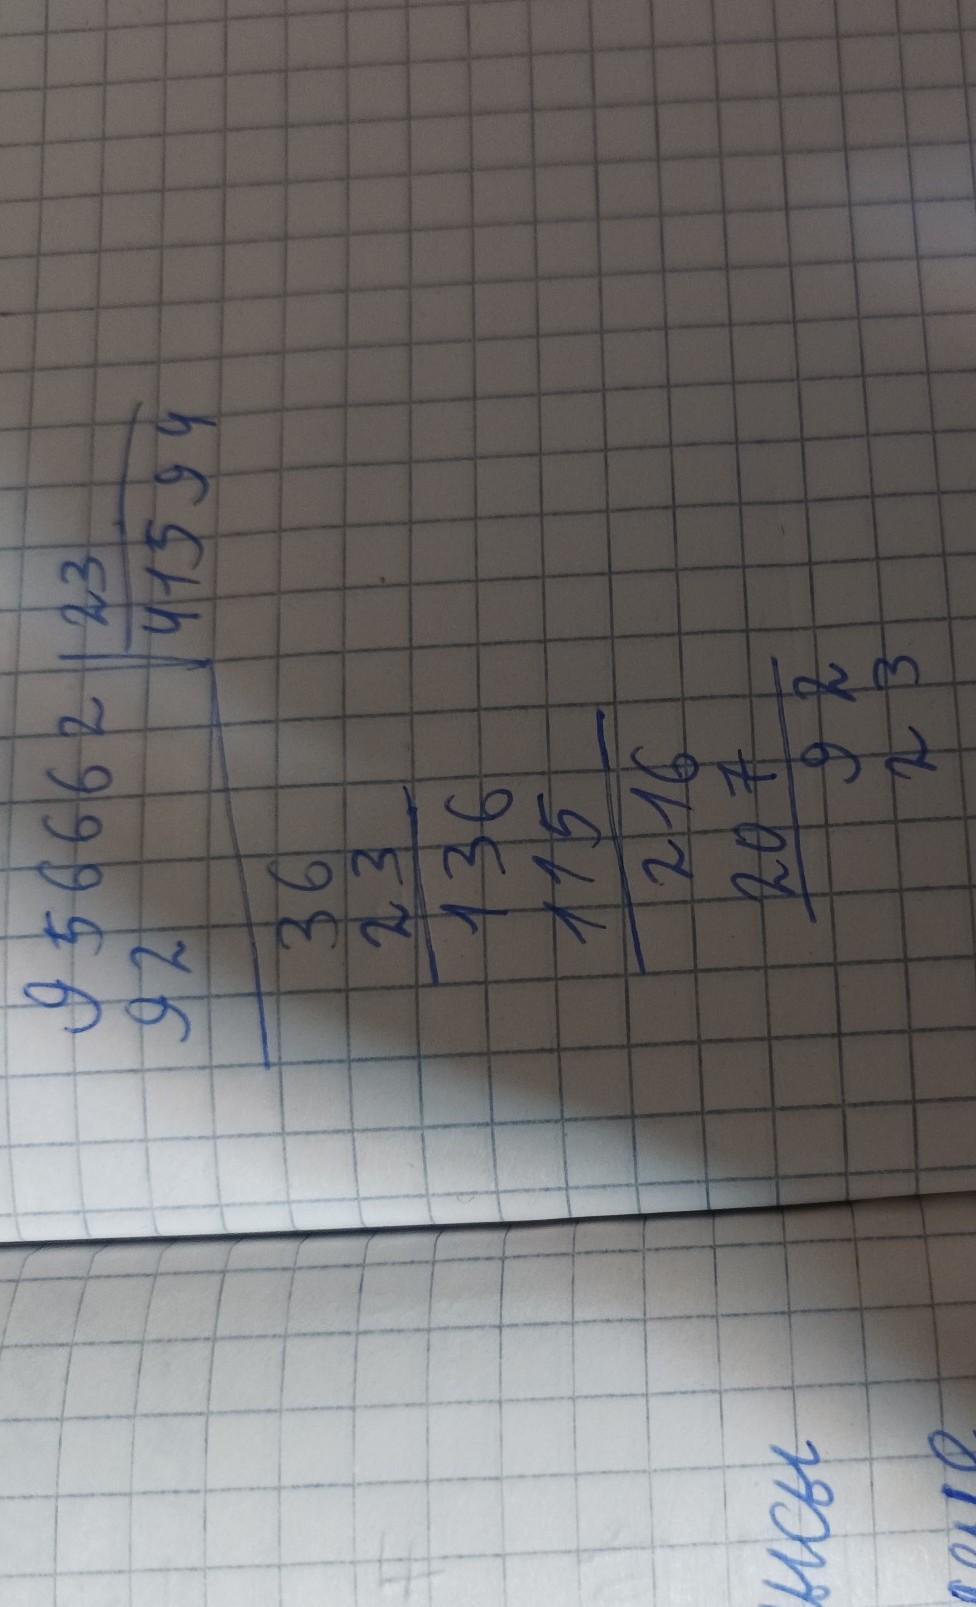 956662 23
92 41594
36
23
136
115
216
207
92
23